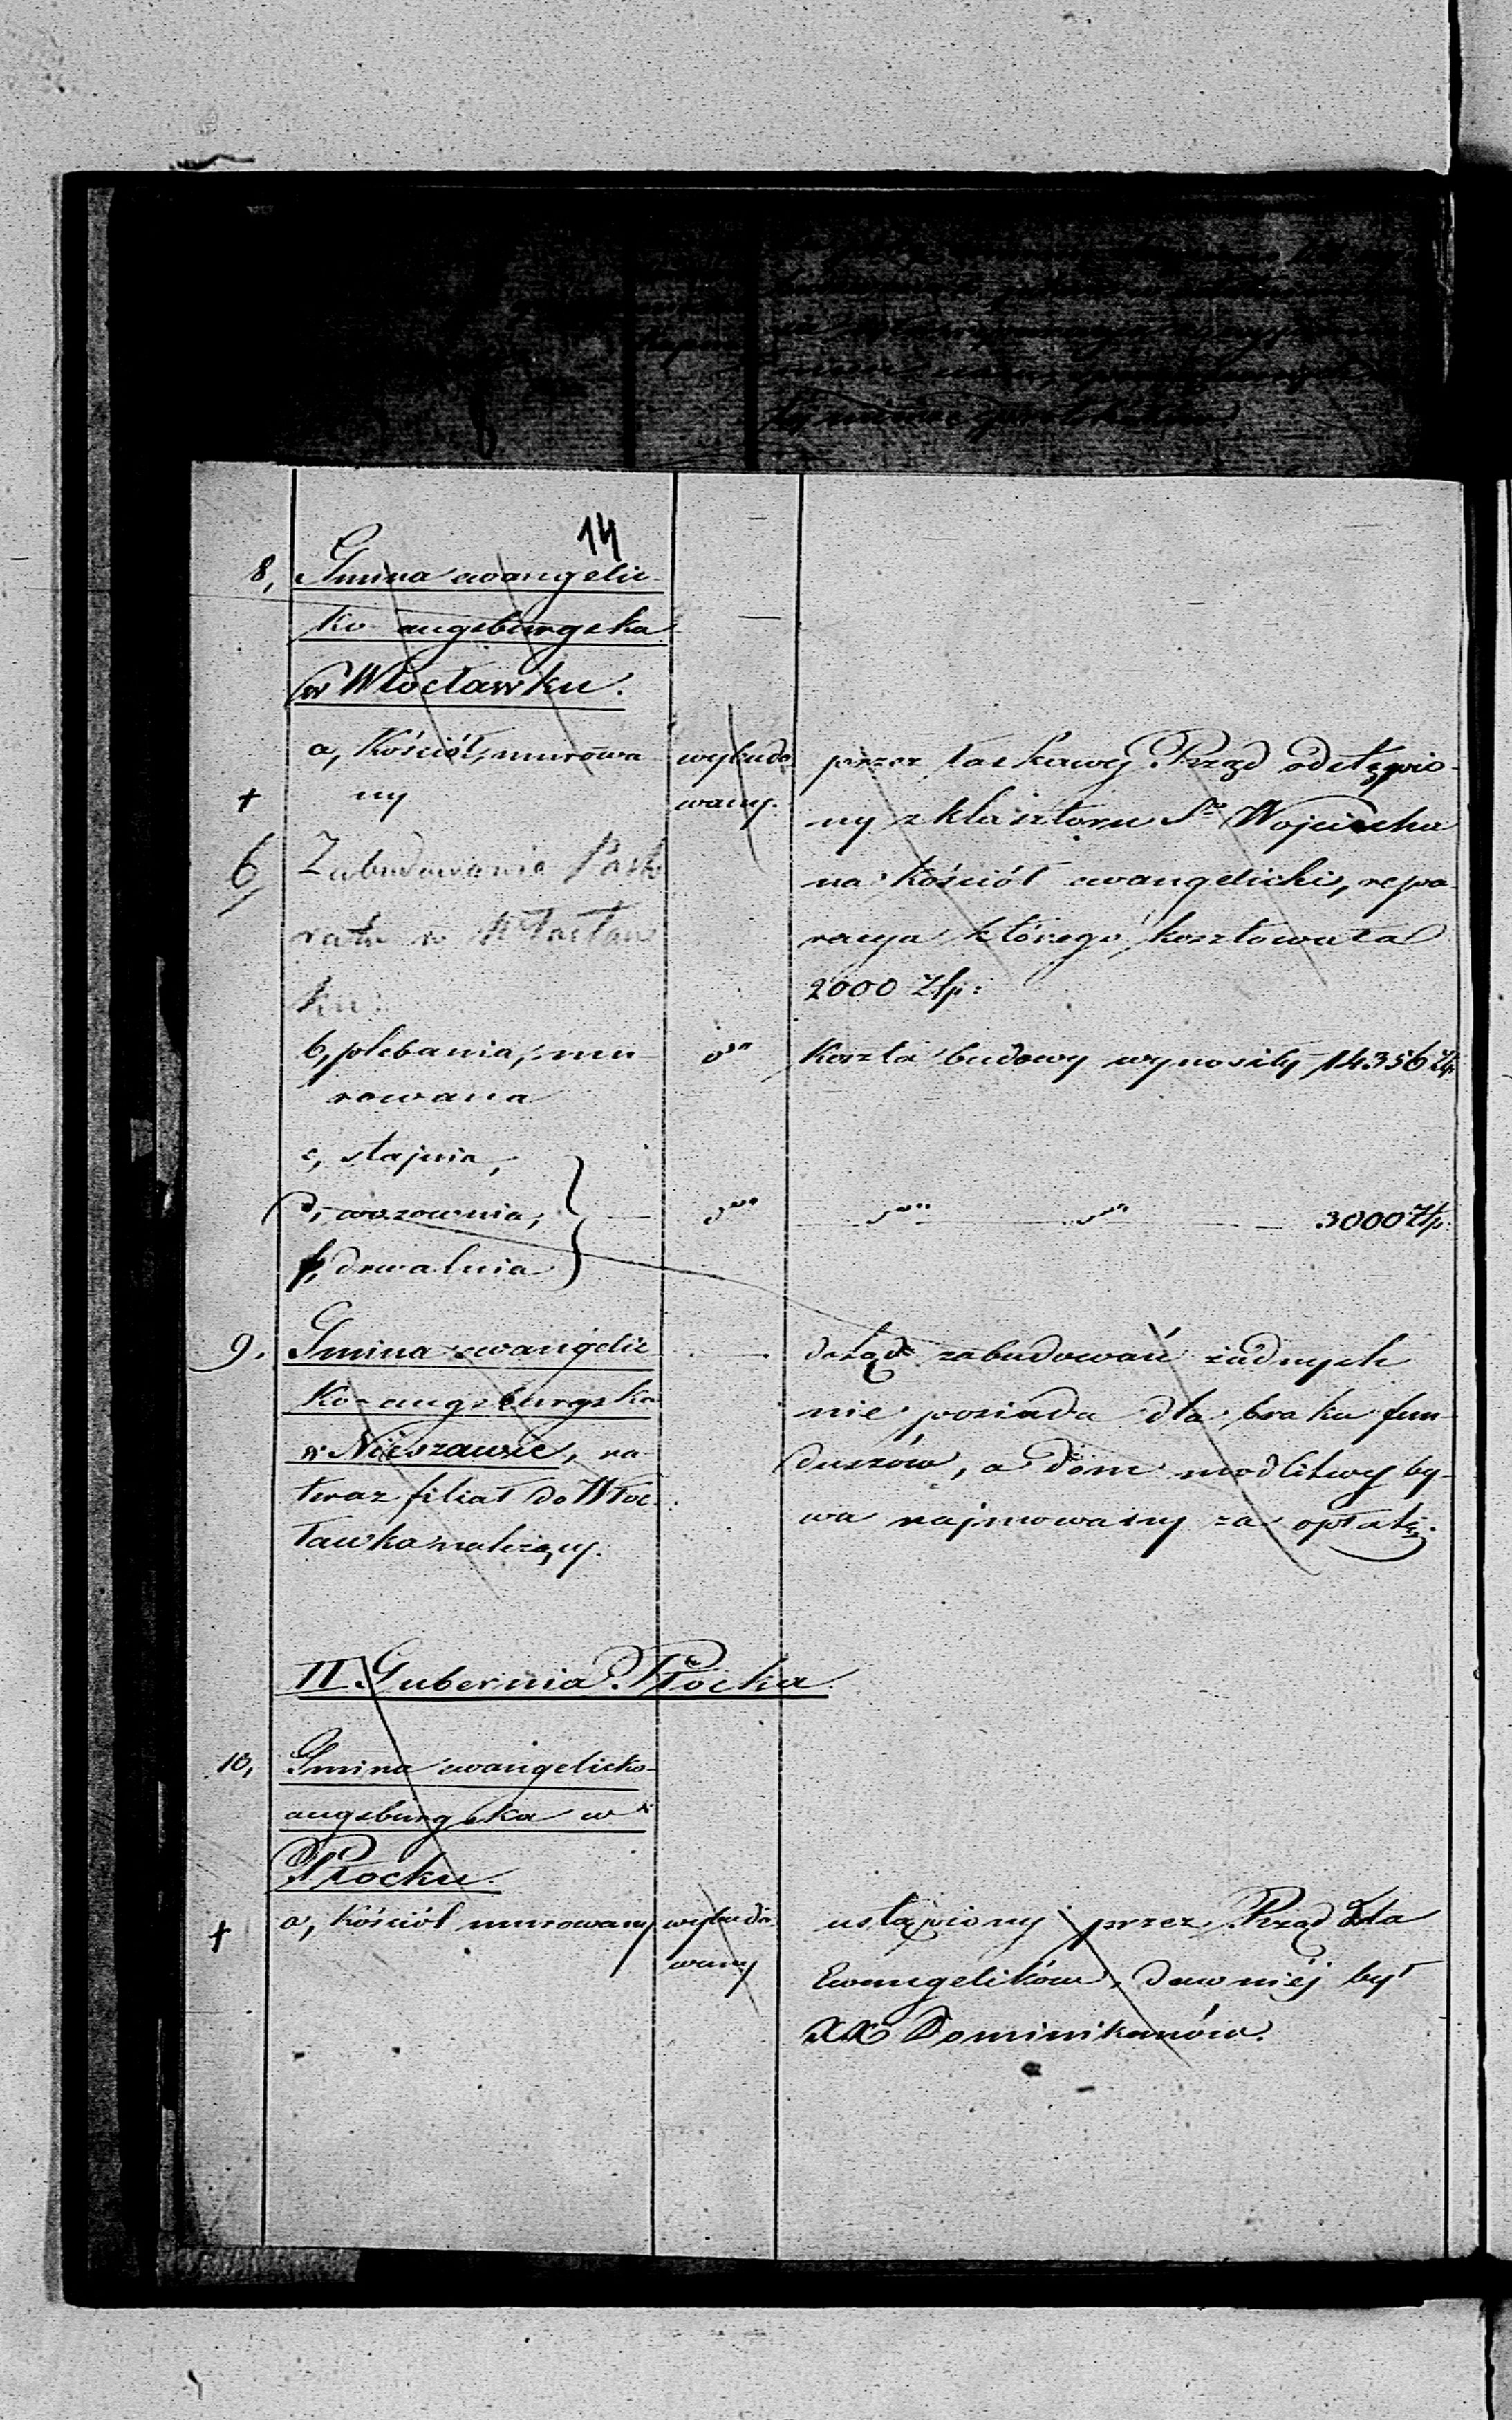 14
8, Gmina ewangelic-
ko augsburgska
w Włocławku.
a, Kościół, murowa
+ ny
wybudo
wany.
przez łaskawy Rząd odstąpio-
ny z klasztoru Sgo Wojciecha
na kościół ewangelicki, repa-
racya którego kosztowała
2000 Złp:
6, Zabudowania Pasto
ratu w Włocław
ku
b, plebania, mu-
rowana
dto
Koszta budowy wynosiły 14356 Złp.
c, stajnia,
d, wozownia,
drwalnia
dto dto dto 3000 Złp.
9. Gmina ewangelic
ko-augsburgska
w Nieszawie, na
teraz filiał do Wło-
cławka należący.
dotąd zabudowań żadnych
nie posiada dla braku fun-
duszów, a dom modlitwy by-
wa najmowany za opłatą.
II Gubernia Płocka
10, Gmina ewangelicko-
augsburgska w
Płocku.
+ a, kościół murowany
wybudo-
wany
ustąpiony przez Rząd dla
Ewangelików, dawniéj był
XX Dominikanów.